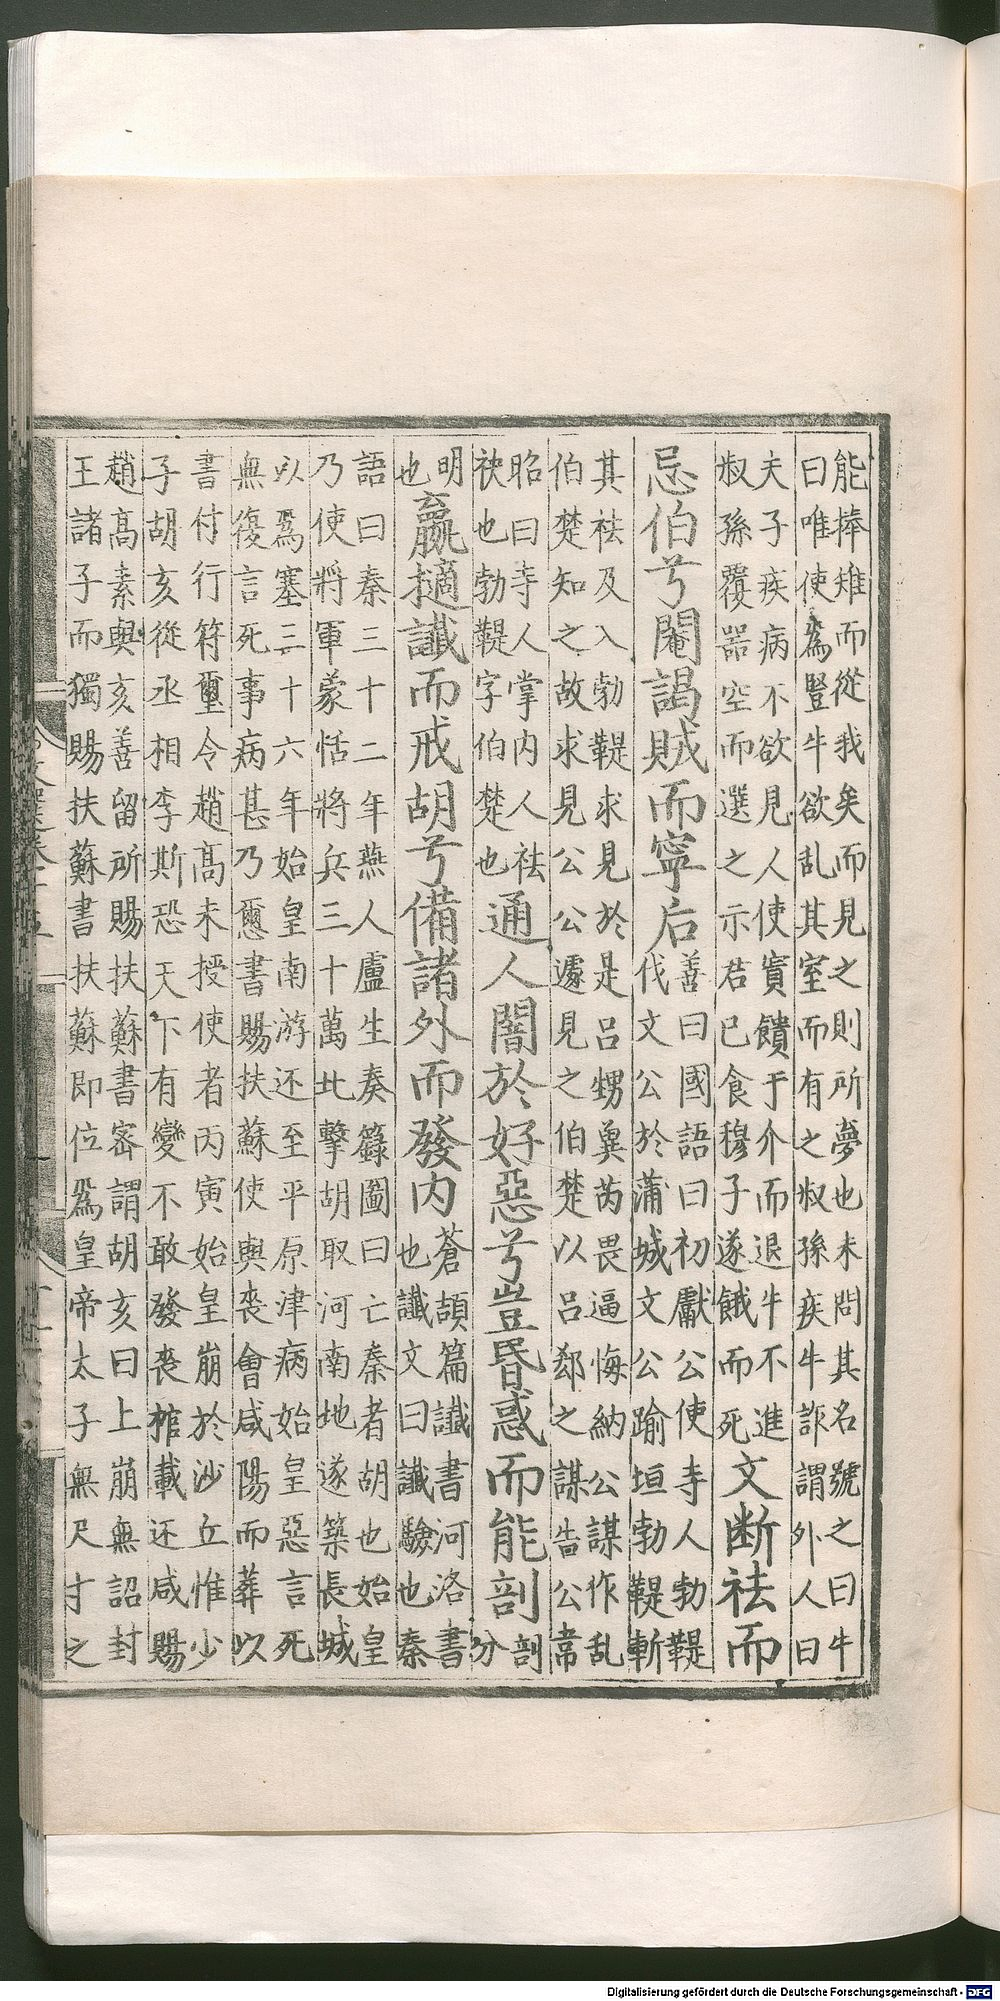 能捧雉而從我矣而見之則所夢也未問其名號之曰牛
曰唯使爲豎牛欲乱其室而有之叔孫疾牛詐謂外人曰
夫子疾病不欲見人使寘饋于介而退牛不進
叔孫覆器空而還之示君已食穆子遂餓而死
文断袪而
忌伯兮閹謁賊而寧后
善曰國語曰初獻公使寺人勃鞮
伐文公於蒲城文公踰垣勃鞮斬
其袪及入勃鞮求見於是呂甥兾芮畏逼悔納公謀作乱
伯楚知之故求見公公遽見之伯楚以呂郄之謀告公韋
昭曰寺人掌内人袪
袂也勃鞮字伯楚也
通人闇於好惡兮豈昬惑而能剖
剖
分
明
也
嬴擿讖而戒胡兮備諸外而發内
蒼頡篇讖書河洛書
也讖文曰讖驗也秦
語曰秦三十二年燕人盧生奏籙圖曰亡秦者胡也始皇
乃使將軍蒙恬將兵三十萬北擊胡取河南地遂築長城
以爲塞三十六年始皇南游还至平原津病始皇惡言死
無復言死事病甚乃爲璽書賜扶蘇使與喪會咸陽而葬以
書付行符璽令趙髙未授使者丙寅始皇崩於沙丘惟少
子胡亥從丞相李斯恐天下有變不敢發喪棺載还咸賜
趙髙素與亥善留所賜扶蘇書密謂胡亥曰上崩無詔封
王諸子而獨賜扶蘇書扶蘇即位爲皇帝太子無尺寸之
Digitalisierung gefördert durch die Deutsche Forschungsgemeinschaft - DFG